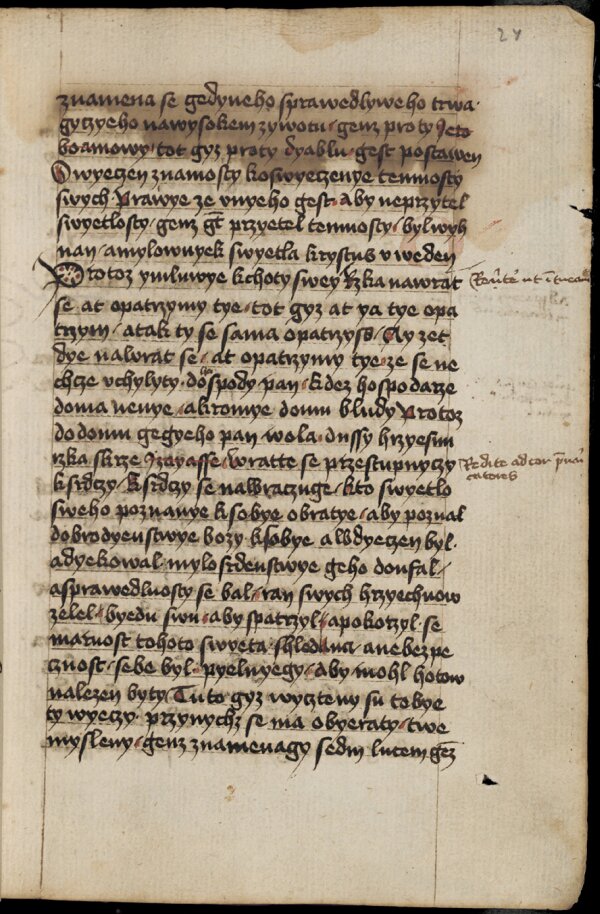 24
znamena se gedyneho sprawedlyweho trwa
gyczyeho nawysokem zywotu · genz proty Jero
boamowy · tot gyz proty dyablu · gest postawen
Owyeczen znamosty koswyeczenye temnosty
swych Prawye ze vnyeho gest · aby neprzytel
swyetlosty · genz gt przyetel temnosty · byl wyh
nan · amylownyek swyetla krystus vweden
Protoz ymluwye kchoty swey Rzka nawrat
Reu̅te̅ ut i̅tuea
se at opatrzymy tye · tot gyz at ya tye opa
trzym · atak ty se sama opatrzyss
dye nawrat se · at opatrzymy tye · ze se ne
chcze vchylyty · do hospody pan · kdez hospodarze
doma nenye · akromye domu bludy Protoz
dodomu gegyeho pan wola · dussy hrzyessnu
rzka skrze Izayasse · wratte se przestupnyczy
Redite ad cor
catores
ksrdczy · ksrdczy se nawraczuge · kto swyetlo
sweho poznanye ksobye obratye · aby poznal
dobrodyenstwye bozy ksobye awdyeczen byl ·
adyekowal · mylosrdenstwye geho doufal ·
asprawedlnosty se bal · ran swych hrzyechuow
zelel · byedu swu · aby spatrzyl · apokorzyl · se
marnost tohoto swyeta · shledanci · anebezpe
cznost · sebe byl · pyelnyegy · aby mohl hotow
nalezen byty · Tuto gyz wyczteny su tobye
ty wyeczy · przynychz se ma obyeraty · twe
mysleny · genz znamenagy sedm lucern gez